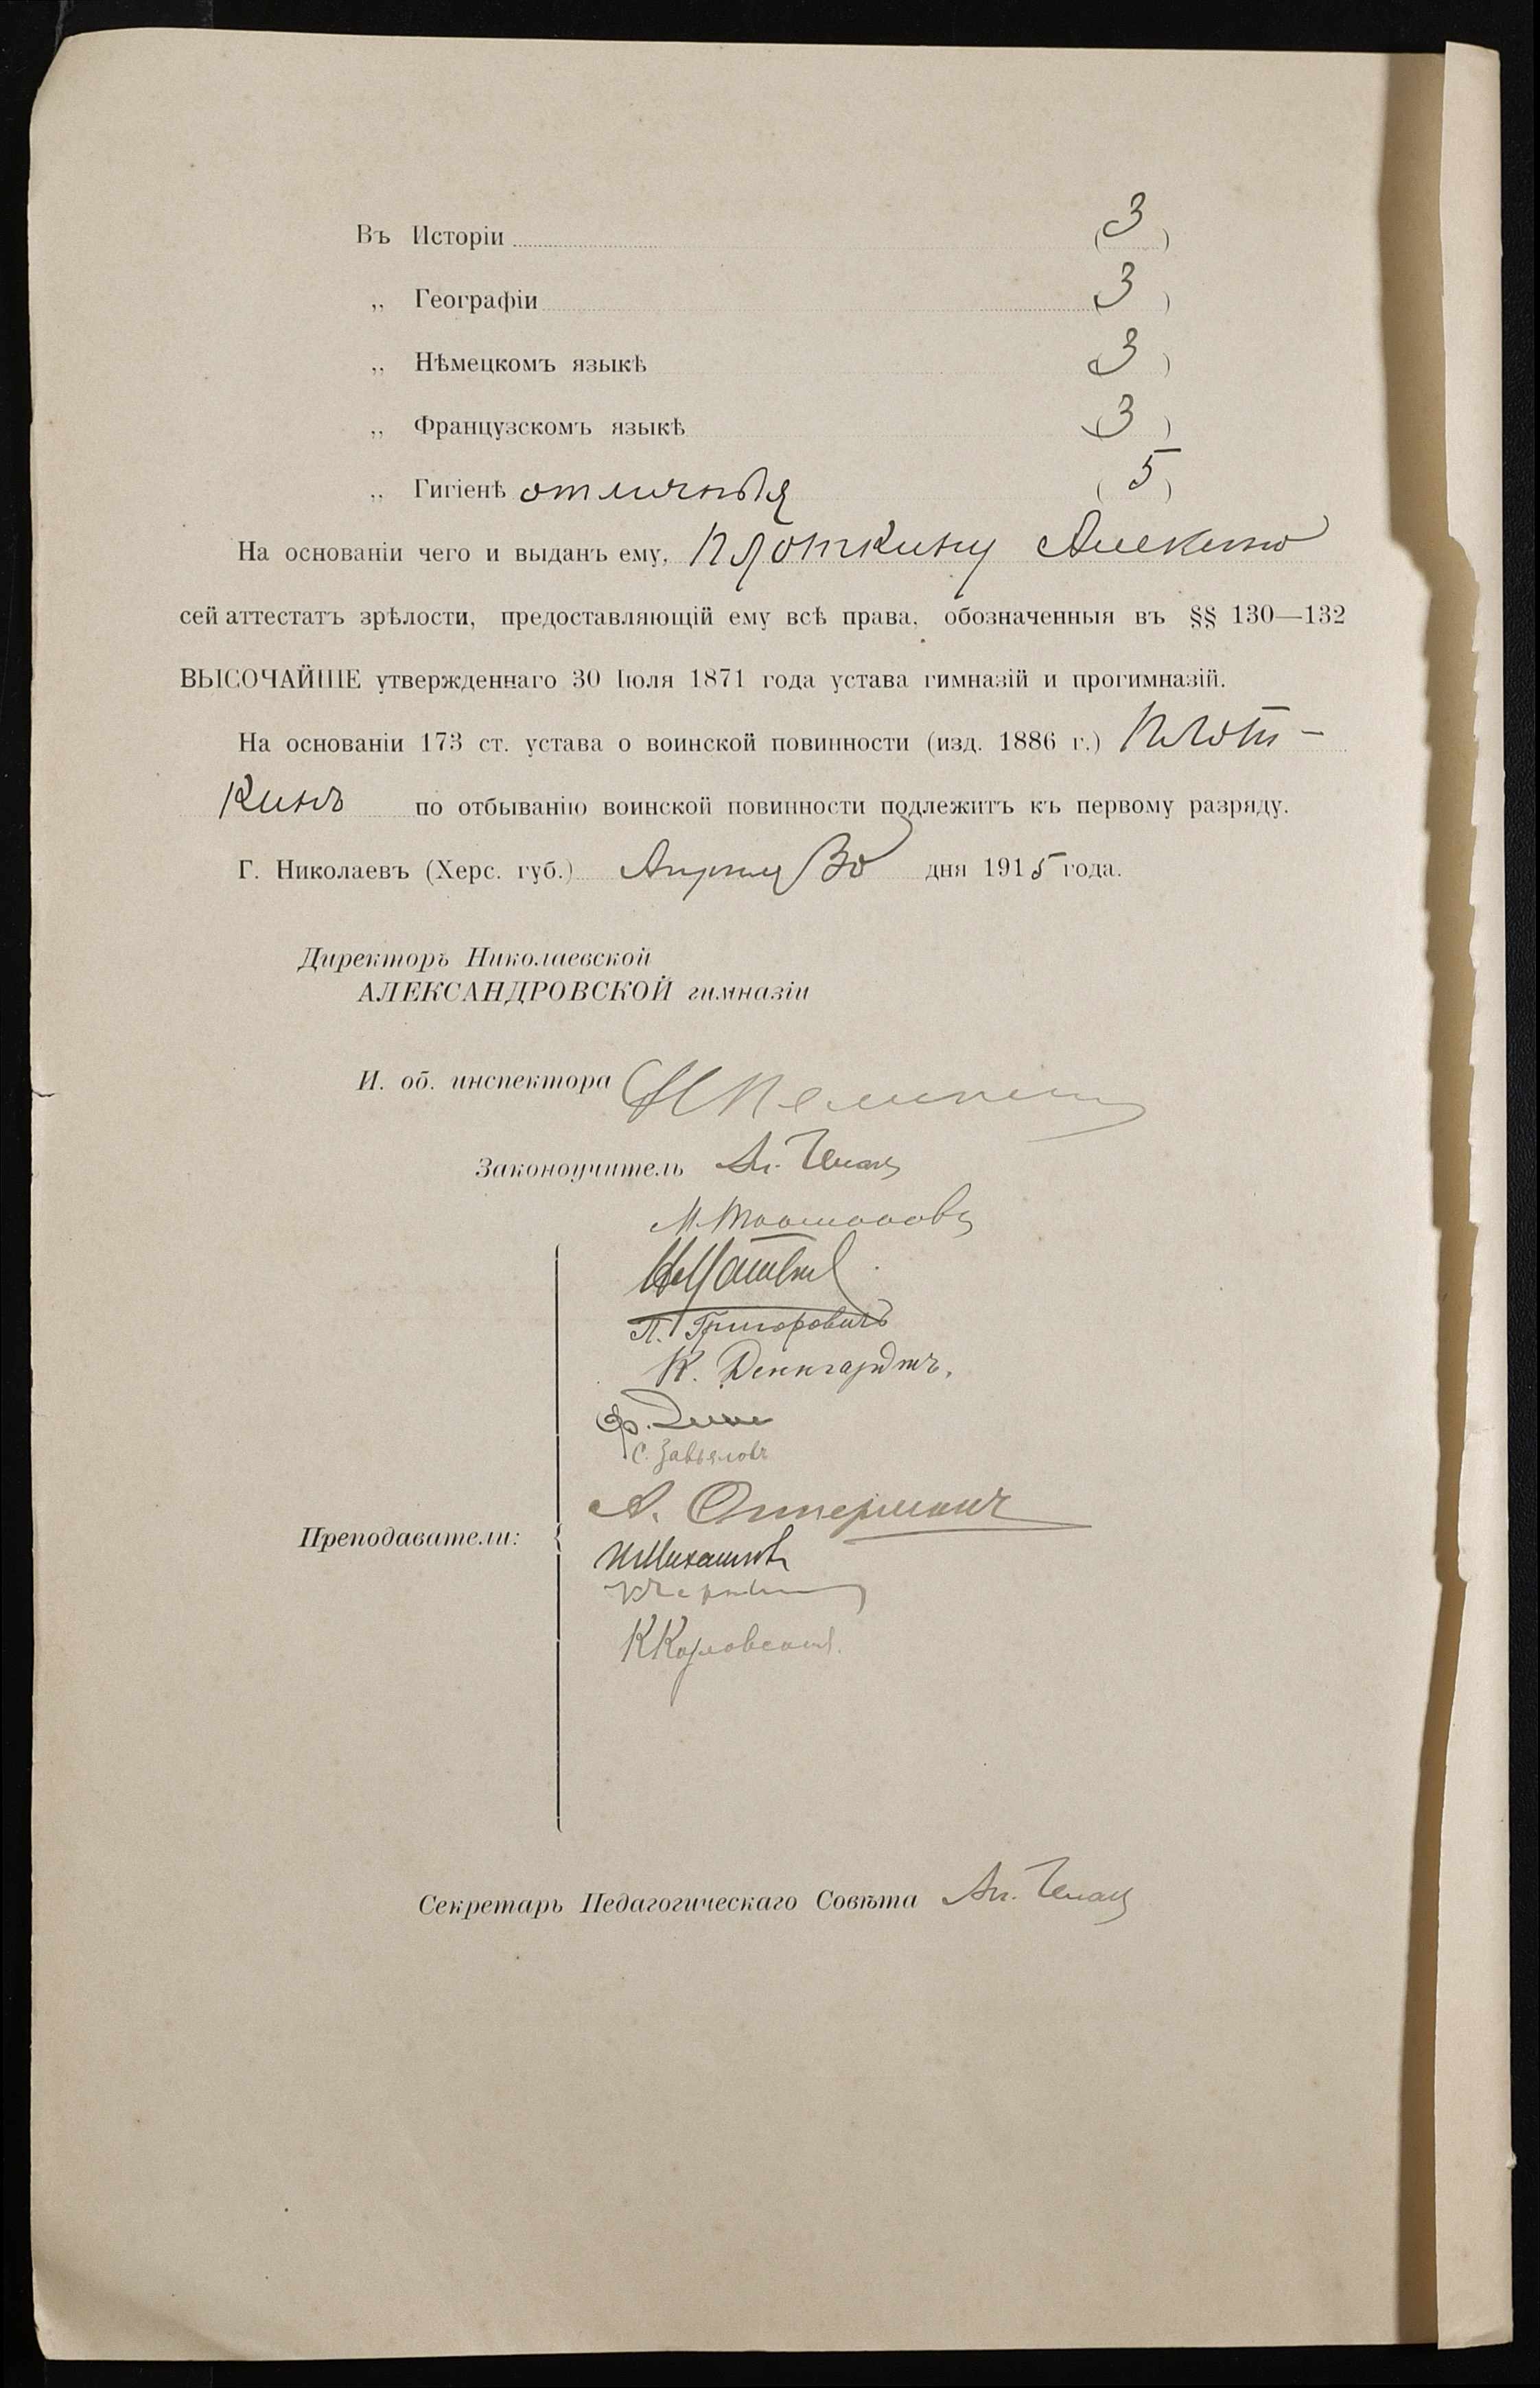 Въ Исторіи (3)
„ Географіи (3)
„ Нѣмецкомъ языкѣ (3)
„ Французскомъ языкѣ (3)
„ Гигіенѣ отличныя (5)
На основаніи чего и выданъ ему, Плоткину
сей аттестатъ зрѣлости, предоставляющій ему всѣ права, обозначенныя въ §§ 130—132
ВЫСОЧАЙШЕ утвержденнаго 30 Іюля 1871 года устава гимназій и прогимназій.
На основаніи 173 ст. устава о воинской повинности (изд. 1886 г.) Плот-
кинъ по отбыванію воинской повинности подлежитъ къ первому разряду.
Г. Николаевъ (Херс. губ.) Апрѣля 30 дня 1915 года.
Директоръ Николаевской
АЛЕКСАНДРОВСКОЙ гимназіи
И. об. инспектора
Законоучитель
П. Григоровичъ
К. Денгардтъ.
С. Завьяловъ
А. Оттерманъ
И Михайловъ
Преподаватели:
Секретарь Педагогическаго Совѣта